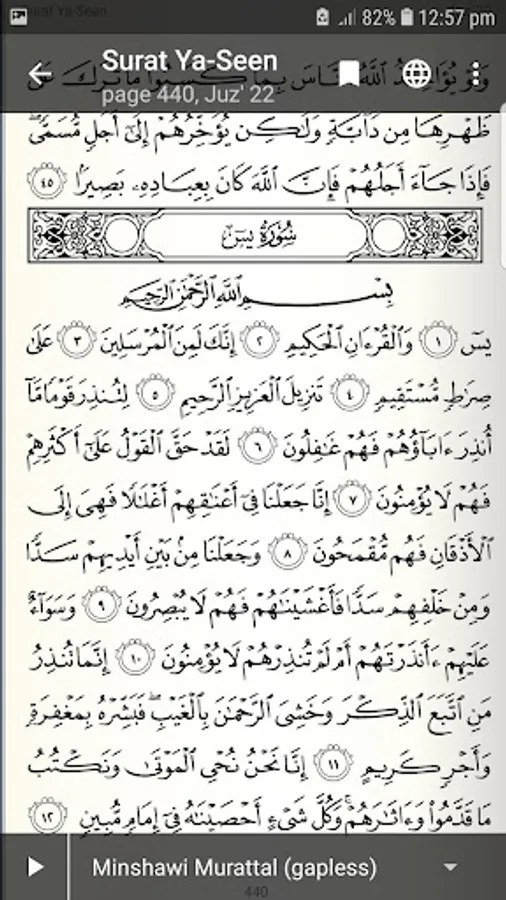 82% 12:57 pm
Surat Ya-Seen
page 440, Juz' 22
وَلَوْ يُؤَاخِذُ ٱللَّهُ ٱلنَّاسَ بِمَا كَسَبُوا۟ مَا تَرَكَ عَلَىٰ
ظَهْرِهَا مِن دَآبَّةٍ وَلَـٰكِن يُؤَخِّرُهُمْ إِلَىٰٓ أَجَلٍ مُّسَمًّى ۖ
فَإِذَا جَآءَ أَجَلُهُمْ فَإِنَّ ٱللَّهَ كَانَ بِعِبَادِهِۦ بَصِيرًۢا ٤٥
سُورَةُ يسٓ
بِسْمِ ٱللَّهِ ٱلرَّحْمَـٰنِ ٱلرَّحِيمِ
يسٓ ١ وَٱلْقُرْءَانِ ٱلْحَكِيمِ ٢ إِنَّكَ لَمِنَ ٱلْمُرْسَلِينَ ٣ عَلَىٰ
صِرَٰطٍ مُّسْتَقِيمٍ ٤ تَنزِيلَ ٱلْعَزِيزِ ٱلرَّحِيمِ ٥ لِتُنذِرَ قَوْمًا مَّآ
أُنذِرَ ءَابَآؤُهُمْ فَهُمْ غَـٰفِلُونَ ٦ لَقَدْ حَقَّ ٱلْقَوْلُ عَلَىٰٓ أَكْثَرِهِمْ
فَهُمْ لَا يُؤْمِنُونَ ٧ إِنَّا جَعَلْنَا فِىٓ أَعْنَـٰقِهِمْ أَغْلَـٰلًا فَهِىَ إِلَى
ٱلْأَذْقَانِ فَهُم مُّقْمَحُونَ ٨ وَجَعَلْنَا مِنۢ بَيْنِ أَيْدِيهِمْ سَدًّا
وَمِنْ خَلْفِهِمْ سَدًّا فَأَغْشَيْنَـٰهُمْ فَهُمْ لَا يُبْصِرُونَ ٩ وَسَوَآءٌ
عَلَيْهِمْ ءَأَنذَرْتَهُمْ أَمْ لَمْ تُنذِرْهُمْ لَا يُؤْمِنُونَ ١٠ إِنَّمَا تُنذِرُ
مَنِ ٱتَّبَعَ ٱلذِّكْرَ وَخَشِىَ ٱلرَّحْمَـٰنَ بِٱلْغَيْبِ ۖ فَبَشِّرْهُ بِمَغْفِرَةٍ
وَأَجْرٍ كَرِيمٍ ١١ إِنَّا نَحْنُ نُحْىِ ٱلْمَوْتَىٰ وَنَكْتُبُ
مَا قَدَّمُوا۟ وَءَاثَـٰرَهُمْ ۚ وَكُلَّ شَىْءٍ أَحْصَيْنَـٰهُ فِىٓ إِمَامٍ مُّبِينٍ ١٢
Minshawi Murattal (gapless)
440